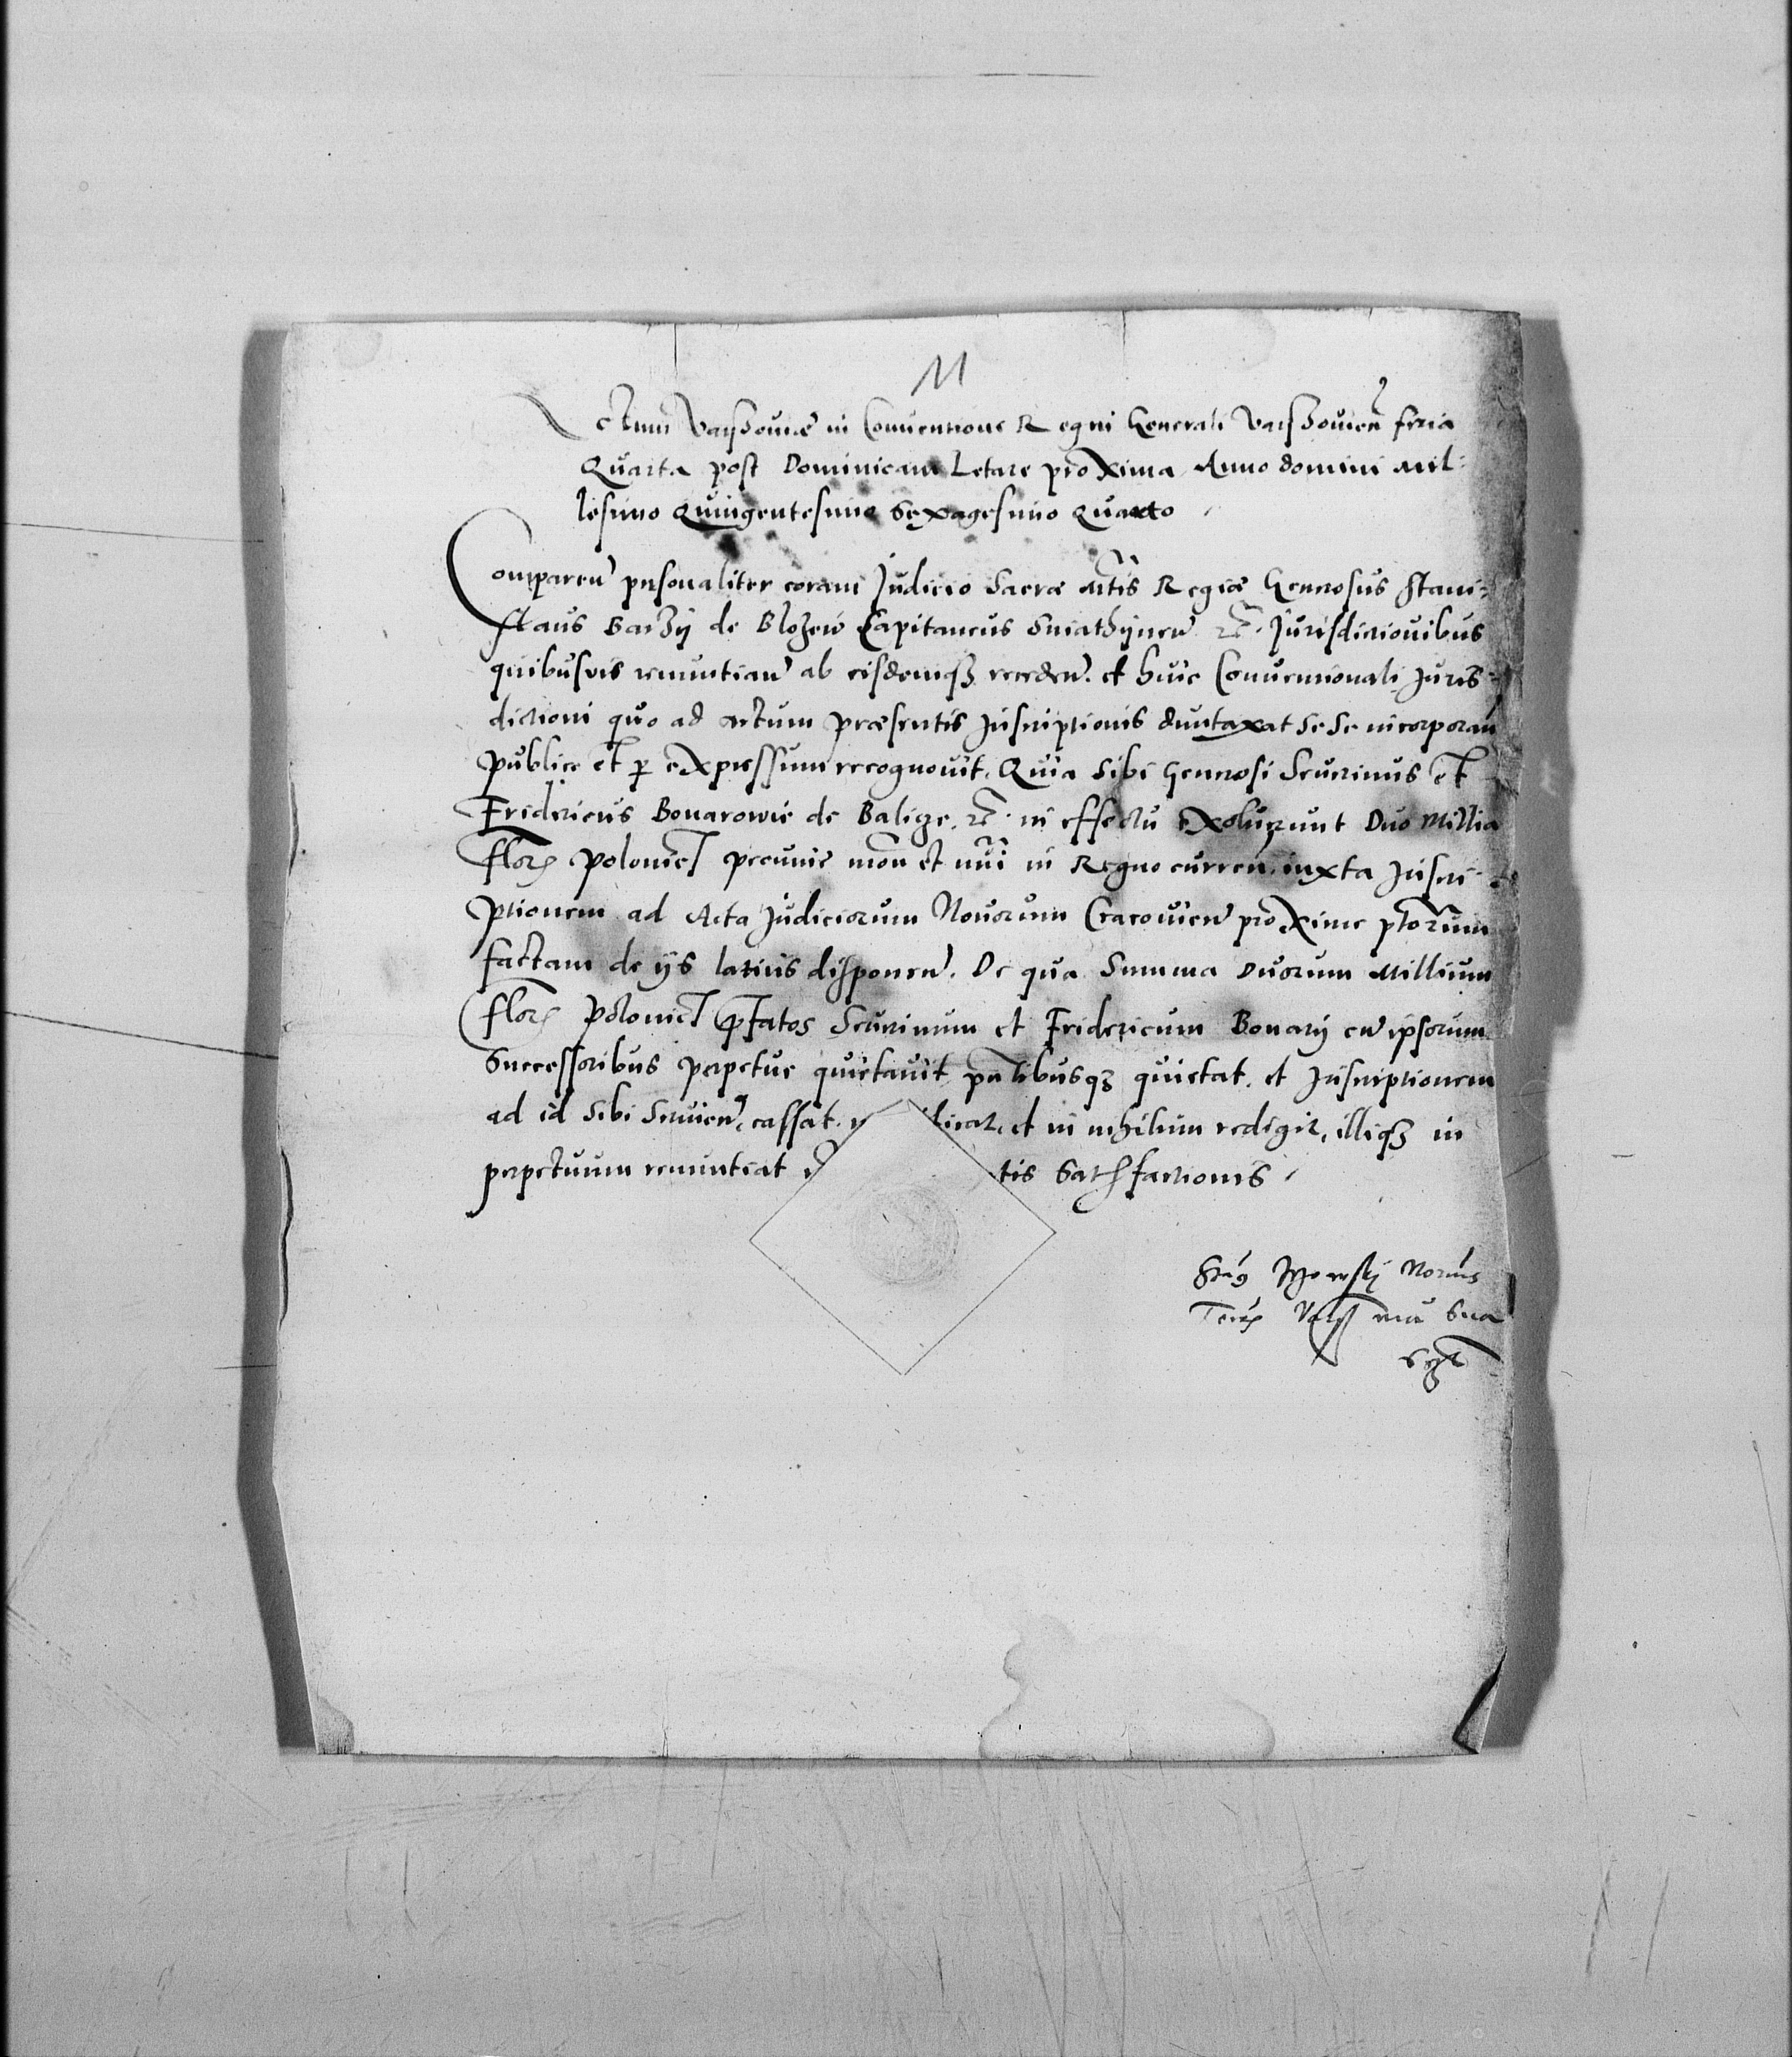 M
Actum Varshoviæ in Conventione Regni Generali Varshovien feria
Quarta post Dominicam Letare proxima Anno domini Mil=
lesimo Quingentesimo Sexagesimo Quarto
Comparen personaliter coram Judicio Sacræ Mtis Regiæ Generosus Stani=
slaus Barzij de Blozew Capitaneus Sniathijnen etc. Jurisdictionibus
quibusvis renuntian ab eisdemqz receden. et huic Conventionali Juris=
dictioni quo ad actum præsentis Inscriptionis duntaxat se se incorporan
publice et per expressum recognovit. Quia sibi Generosi Severinus et
Fridericus Bonarowie de Balige. etc. in effectu exolverunt Duo Millia
flor Polonicl pecunie mon et nui in Regno curren. iuxta Inscri=
ptionem ad Acta Judiciorum Novorum Cracovien proxime ptorum
factam de ijs latius disponen. De qua Summa Duorum Millium
flor Polonicl pfatos Severinum et Fridericum Bonarij cu ipsorum
Successoribus perpetue quietavit pntibusqz quietat. et Inscriptionem
ad id sibi servien. cassat. et in nihilum redigit, illiqz in
perpetuum renuntiat tis Satisfactionis
Notrius
Terrs Vars mu sua
sszt